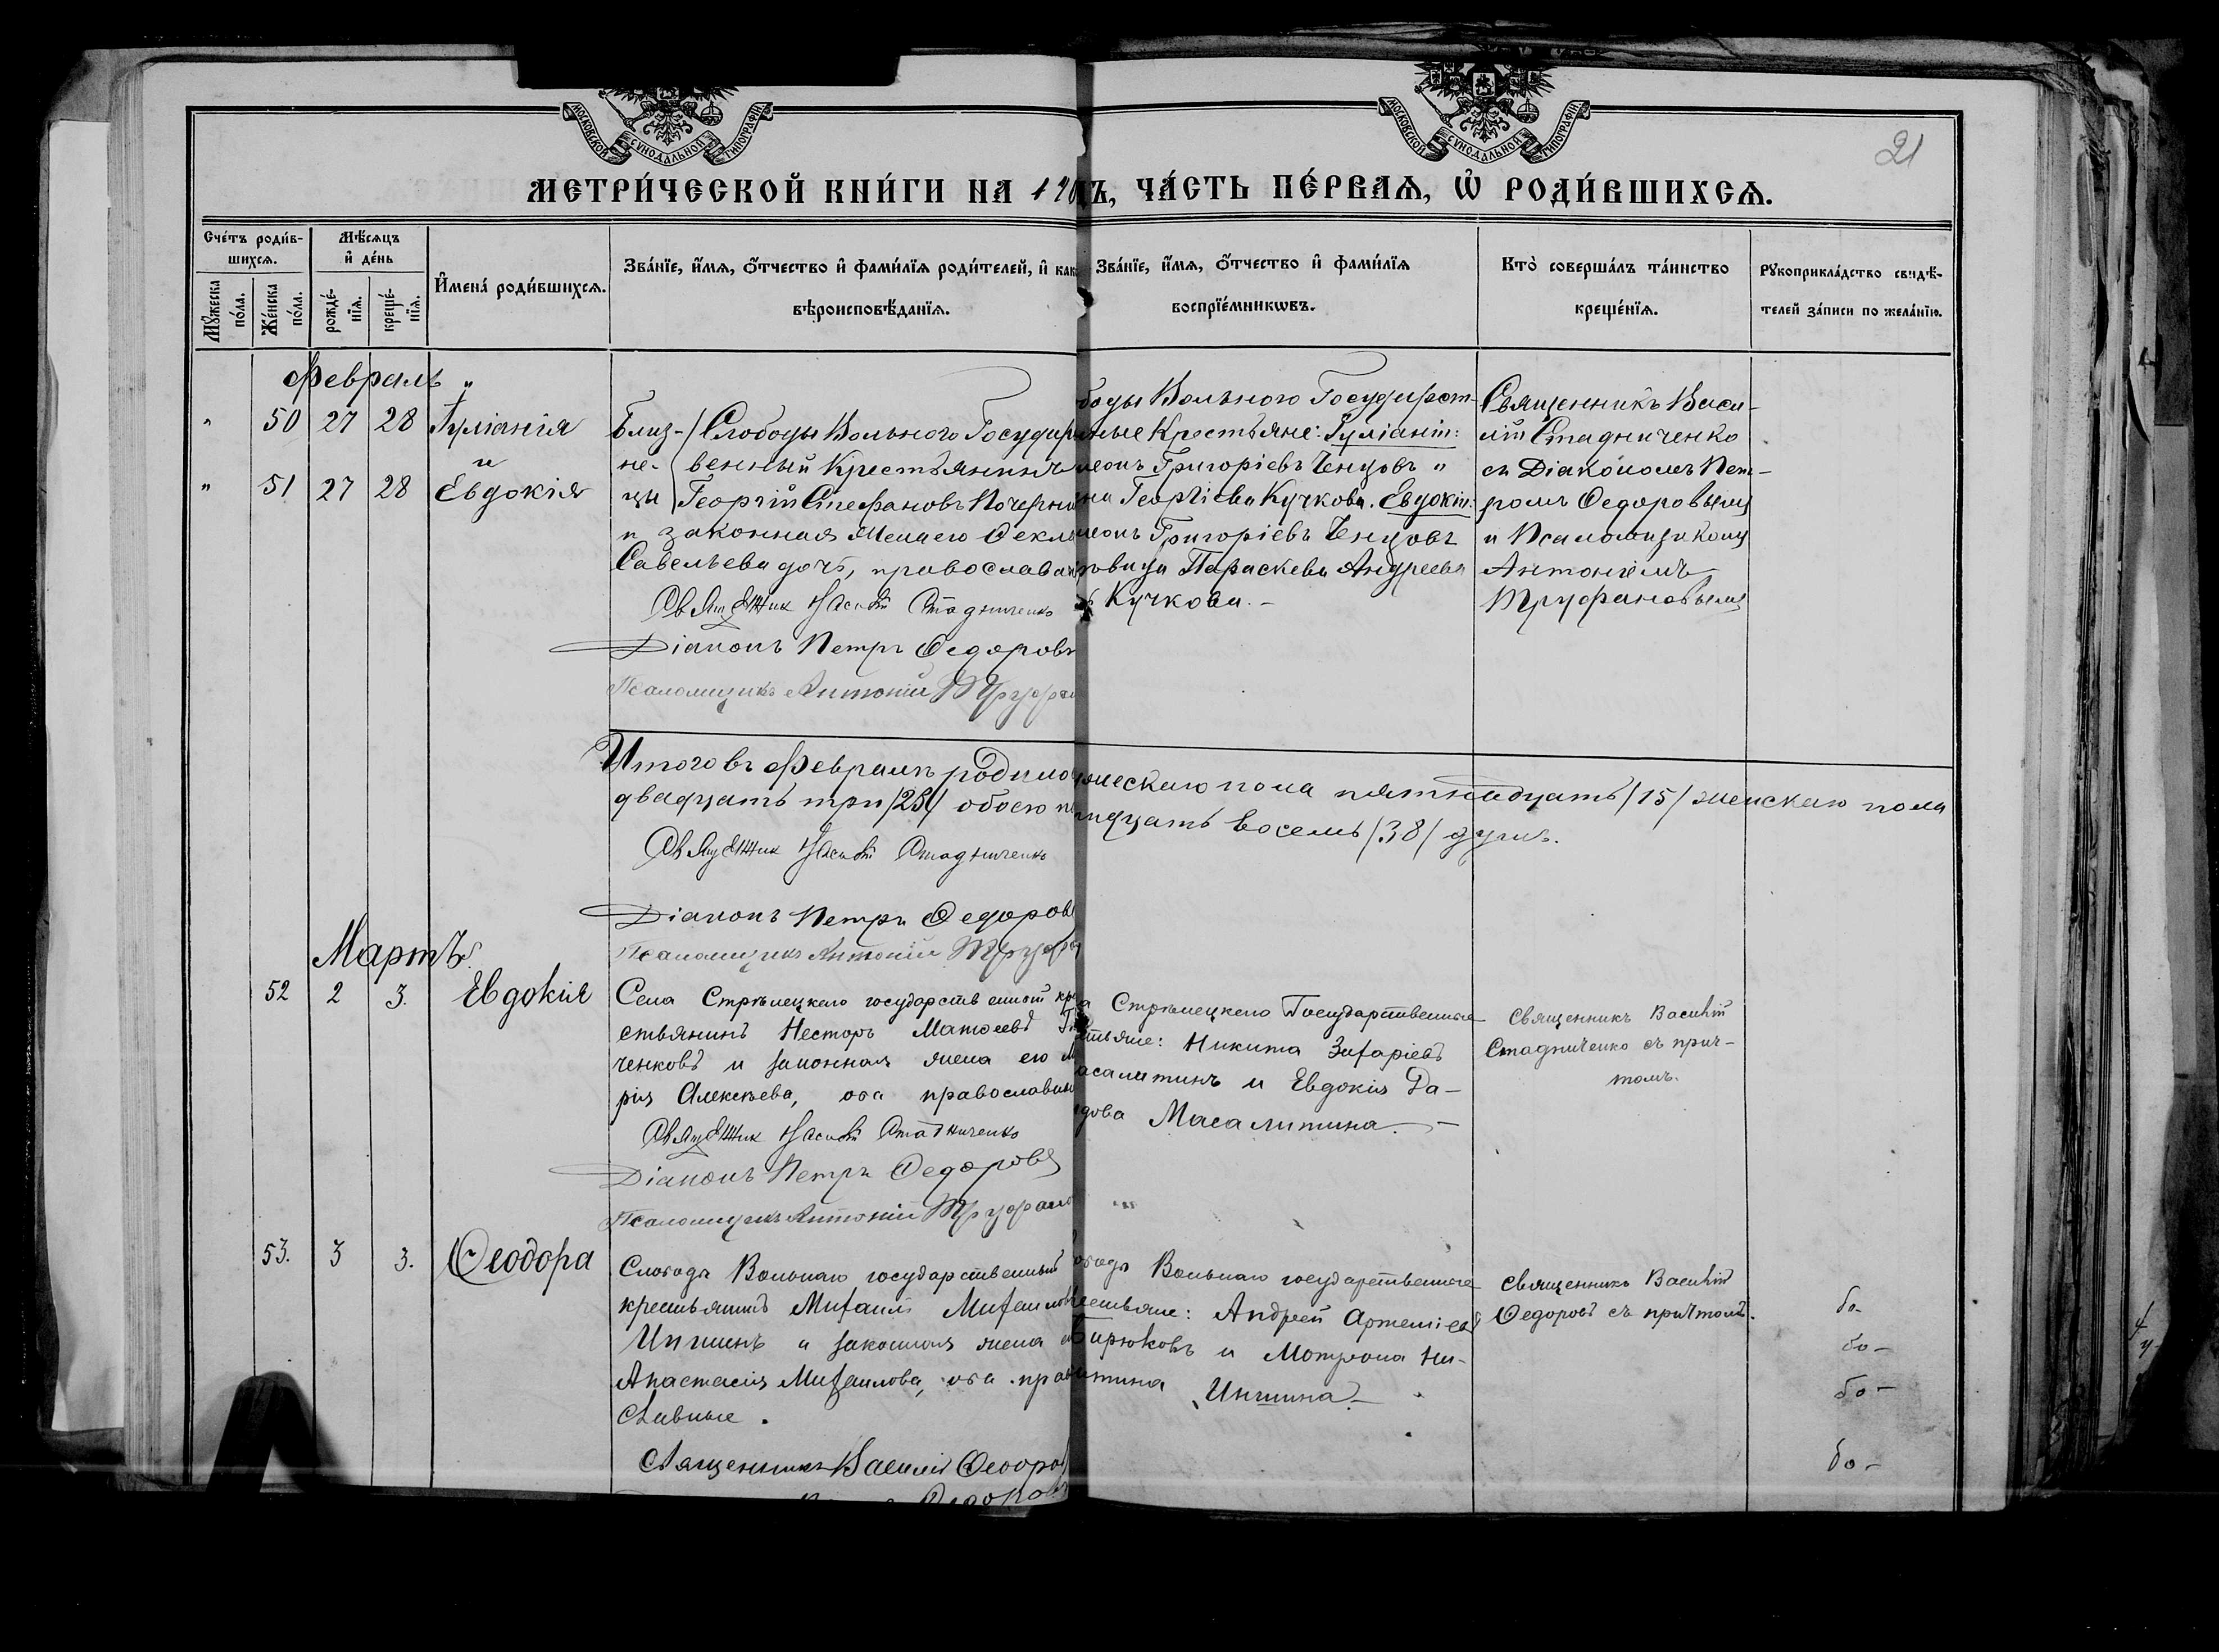 МОСКОВСКОЙ СУНОДАЛЬНОЙ ТИПОГРАФІИ
МОСКОВСКОЙ СУНОДАЛЬНОЙ ТИПОГРАФІИ
21
МЕТРИ́ЧЕСКОЙ КНИ́ГИ НА
Ъ, ЧА́СТЬ ПЕ́РВАѦ, Ѡ҆ РОДИ́ВШИХСѦ.
Сче́тъ роди́в-
шихсѧ.
Мѣ́сѧцъ
и҆ де́нь
Мꙋ́жеска по́ла.
Же́нска по́ла.
рожде́-
нїѧ.
креще́-
нїѧ.
И҆мена̀ роди́вшихсѧ.
Зва́нїе, и҆́мѧ, ѻ҆́тчество и҆ фами́лїѧ роди́телей, и҆ как
вѣроисповѣ́данїѧ.
Зва́нїе, и҆́мѧ, ѻ҆́тчество и҆ фами́лїѧ
воспрїе́мникѡвъ.
Кто̀ соверша́лъ та́инство
креще́нїѧ.
Рꙋкоприкла́дство свидѣ́-
телей за́писи по жела́нїю.
Февраль "
" 50 27 28 Іуліанія
и
" 51 27 28 Евдокія
Близ-
не-
цы
Слободы Вольного Государ
венный Крестьянинъ
Георгій Стефановъ
и законная жена его Ѳекла
Савельева дочь, православ
Священник Василій Стадниченко
Діаконъ Петръ Ѳедоровъ
Псаломщикъ Антоній Труфан
боды Вольного Государст-
ные Крестьяне: Іуліаніи:
меонъ Григоріевъ Ченцовъ "
на Георгіева Кучкова. Евдокіи:
меонъ Григоріевъ Ченцовъ
вица Параскева Андреева
Кучкова. -
Священникъ Васи-
лій Стадниченко
съ Діакономъ Пет-
ромъ Ѳедоровымъ
и Псаломщикомъ
Антоніемъ
Труфановымъ
Итого въ Февралѣ родило мужескаго пола пятнадцать /15/ женскаго пола
двадцать три /23/ обоего тридцать восемь /38/ душъ.
Священник Василій Стадниченко
Діаконъ Петръ Ѳедоров
Псаломщикъ Антоній Труфа
Мартъ.
52 2 3. Евдокія
Села Стрѣлецкаго государственной кре
стьянинъ Несторъ Матѳеевъ
ченковъ и законная жена его М
рія Алексѣева, оба православны
Священник Василій Стадниченко
Діаконъ Петръ Ѳедоровъ
Псаломщикъ Антоній Труфано
а Стрѣлецкаго Государственные
стьяне: Никита Захаріевъ
асалитинъ и Евдокія Да-
дова Масалитина. -
Священникъ Василій
Стадниченко съ прич-
томъ.
53. 3 3. Ѳеодора
Слобода Вольнаго государственный
крестьянинъ Михаилъ Михаилов
Иншинъ и законная жена е
Анастасія Михаилова, оба прав
славные.
Священникъ Василій Ѳеодоро
обода Вольнаго государственные
рестьяне: Андрей Артеміевъ
Бирюковъ и Матрона Ни-
итина Иншина. -
Священникъ Василій
Ѳедоровъ съ причтомъ.